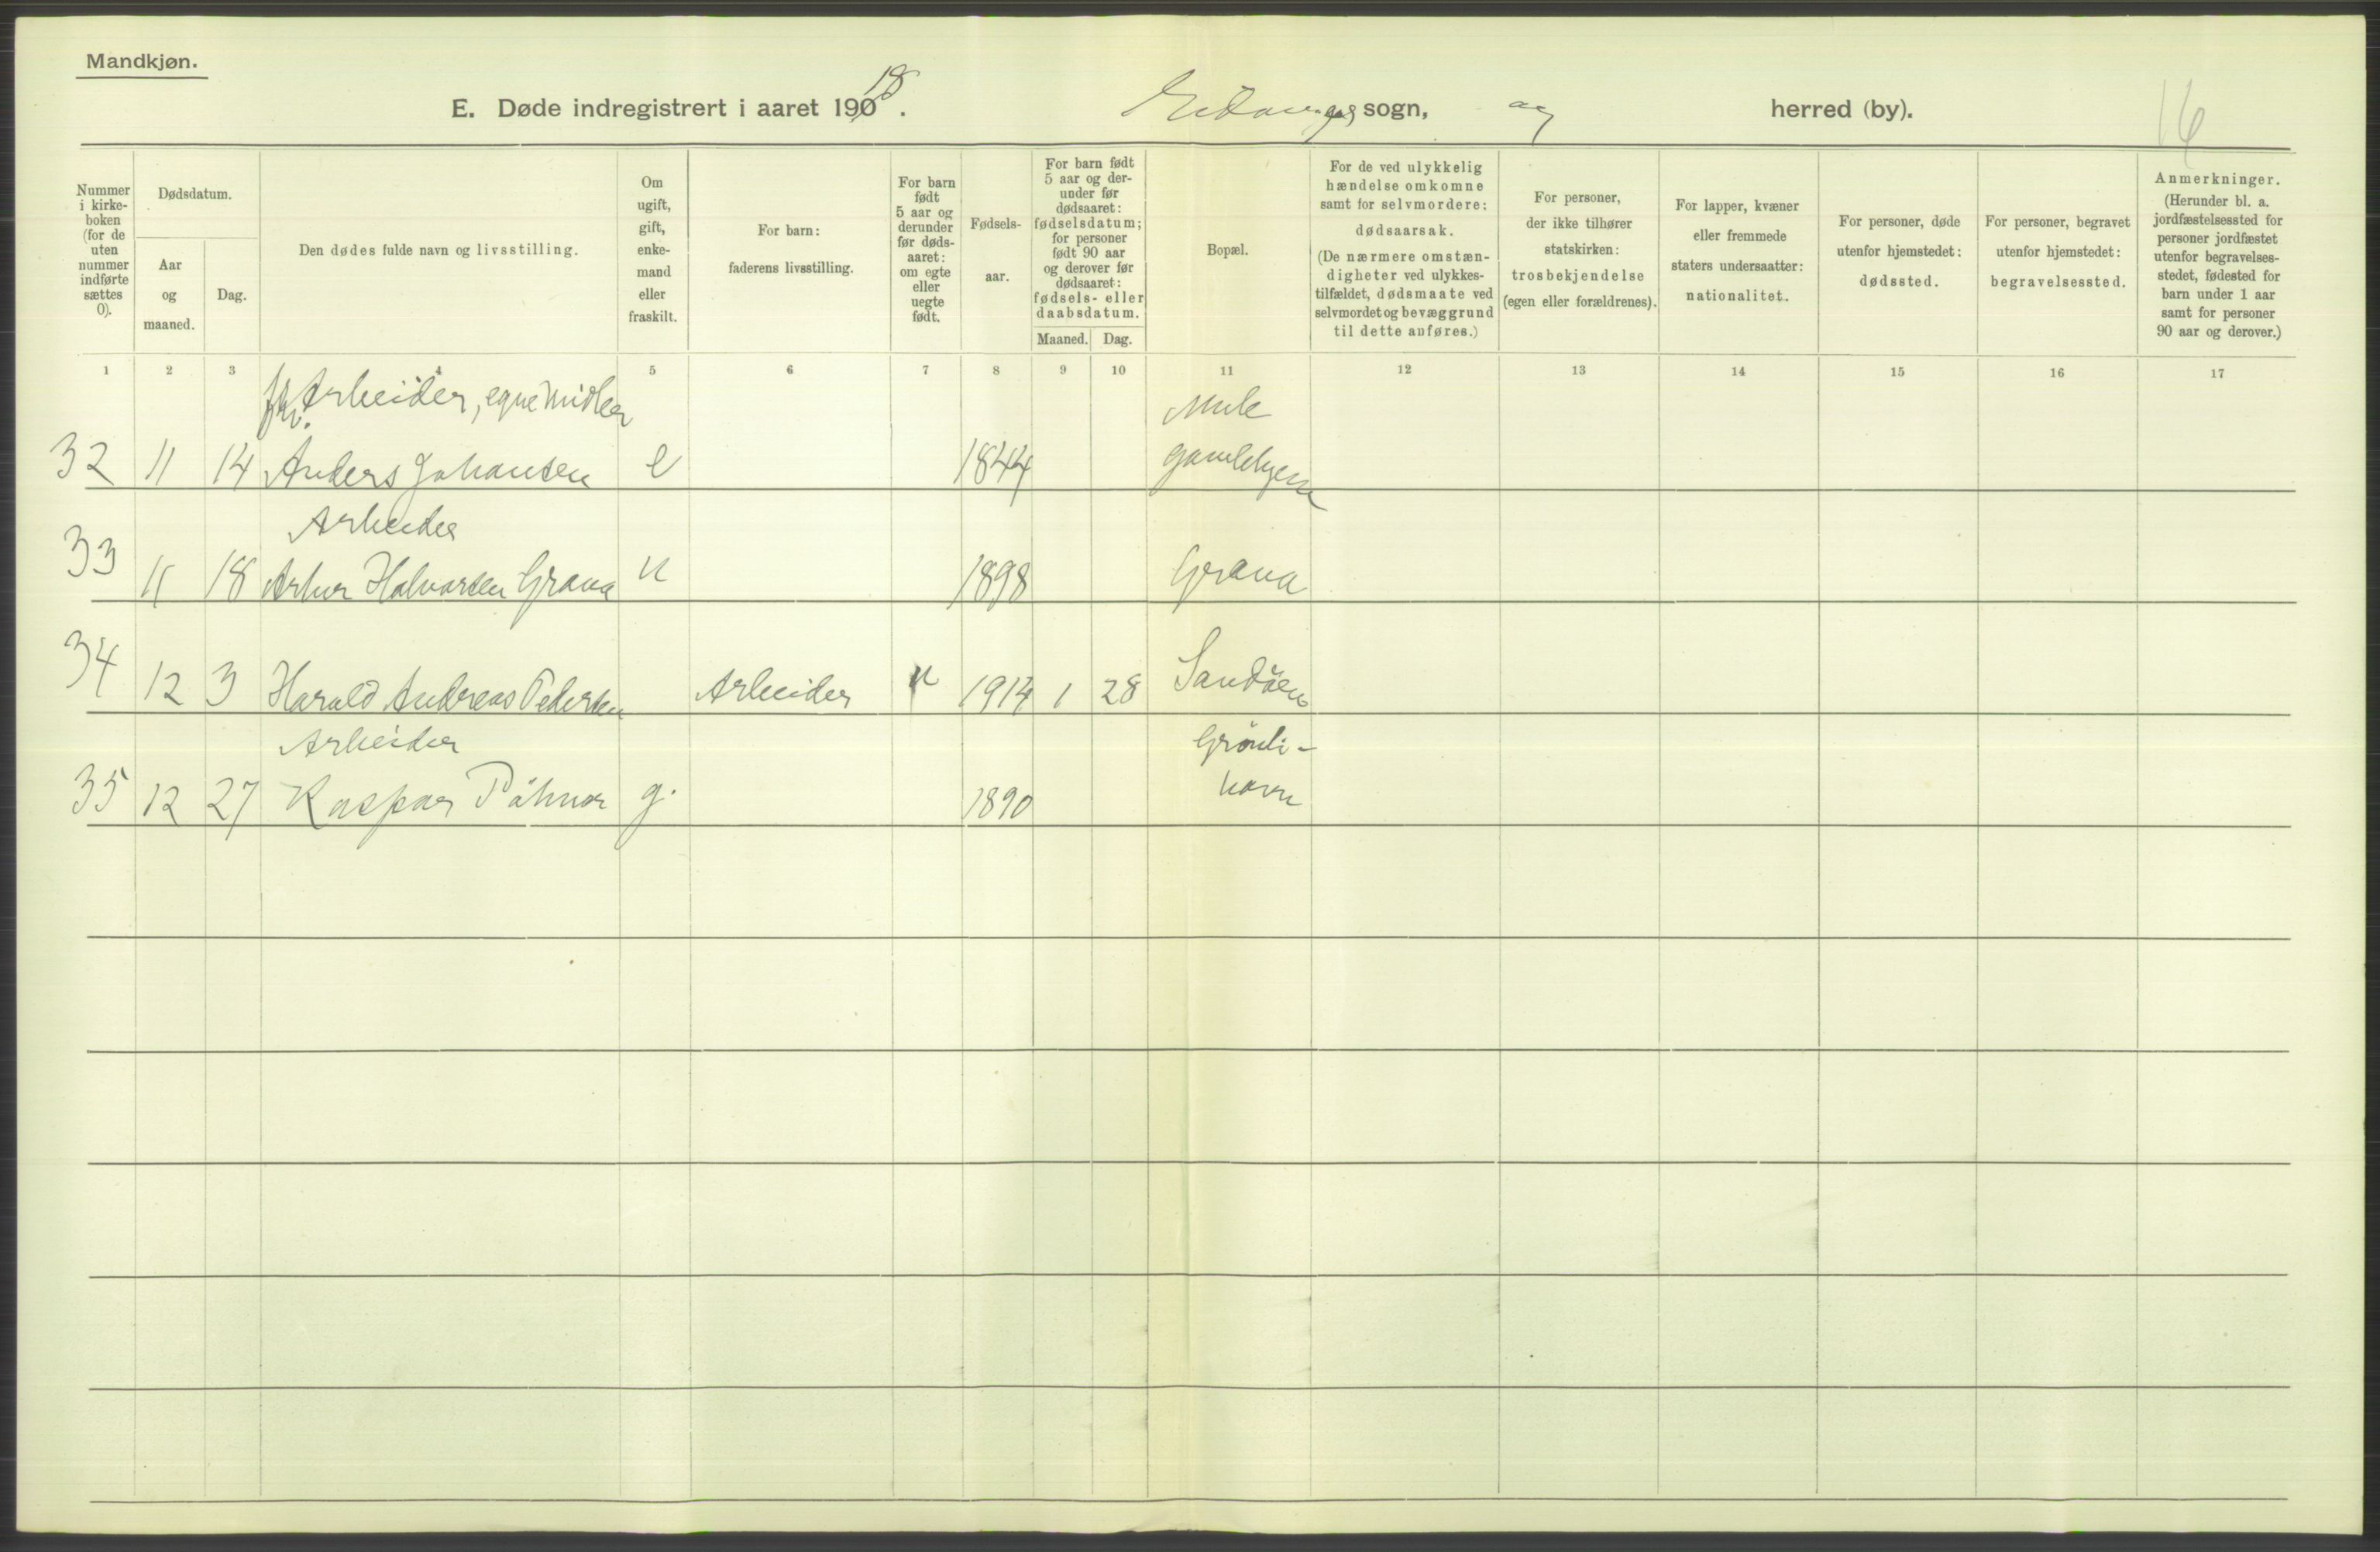 Mandkjøn.
E. Døde indregistrert i aaret 1918. Eidanger sogn, og herred (by).
16
Nummer i kirke-boken (for de uten nummer indførte sættes 0).
Dødsdatum.
Aar og maaned.
Dag.
Den dødes fulde navn og livsstilling.
Om ugift, gift, enke-mand eller fraskilt.
For barn: faderens livsstilling.
For barn født 5 aar og derunder før døds-aaret: om egte eller uegte født.
Fødsels-aar.
For barn født 5 aar og der-under før dødsaaret: fødselsdatum; for personer født 90 aar og derover før dødsaaret: fødsels- eller daabsdatum.
Maaned. Dag.
Bopæl.
For de ved ulykkelig hændelse omkomne samt for selvmordere: dødsaarsak. (De nærmere omstæn-digheter ved ulykkes-tilfældet, dødsmaate ved selvmordet og bevæggrund til dette anføres.)
For personer, der ikke tilhører statskirken: trosbekjendelse (egen eller forældrenes).
For lapper, kvæner eller fremmede staters undersaatter: nationalitet.
For personer, døde utenfor hjemstedet: dødssted.
For personer, begravet utenfor hjemstedet: begravelsessted.
Anmerkninger. (Herunder bl. a. jordfæstelsessted for personer jordfæstet utenfor begravelses-stedet, fødested for barn under 1 aar samt for personer 90 aar og derover.)
1 2 3 4 5 6 7 8 9 10 11 12 13 14 15 16 17
Arbeider, egne midler Mule
32 11 14 Anders Johansen e 1844
Arbeider
33 11 18 Artur Halvorsen Grava u 1898 Grava
34 12 3 Harald Andreas Pedersen Arbeider u 1914 1 28 Sandøen
Arbeider Grönli-
35 12 27 Kaspar g. 1890 havn